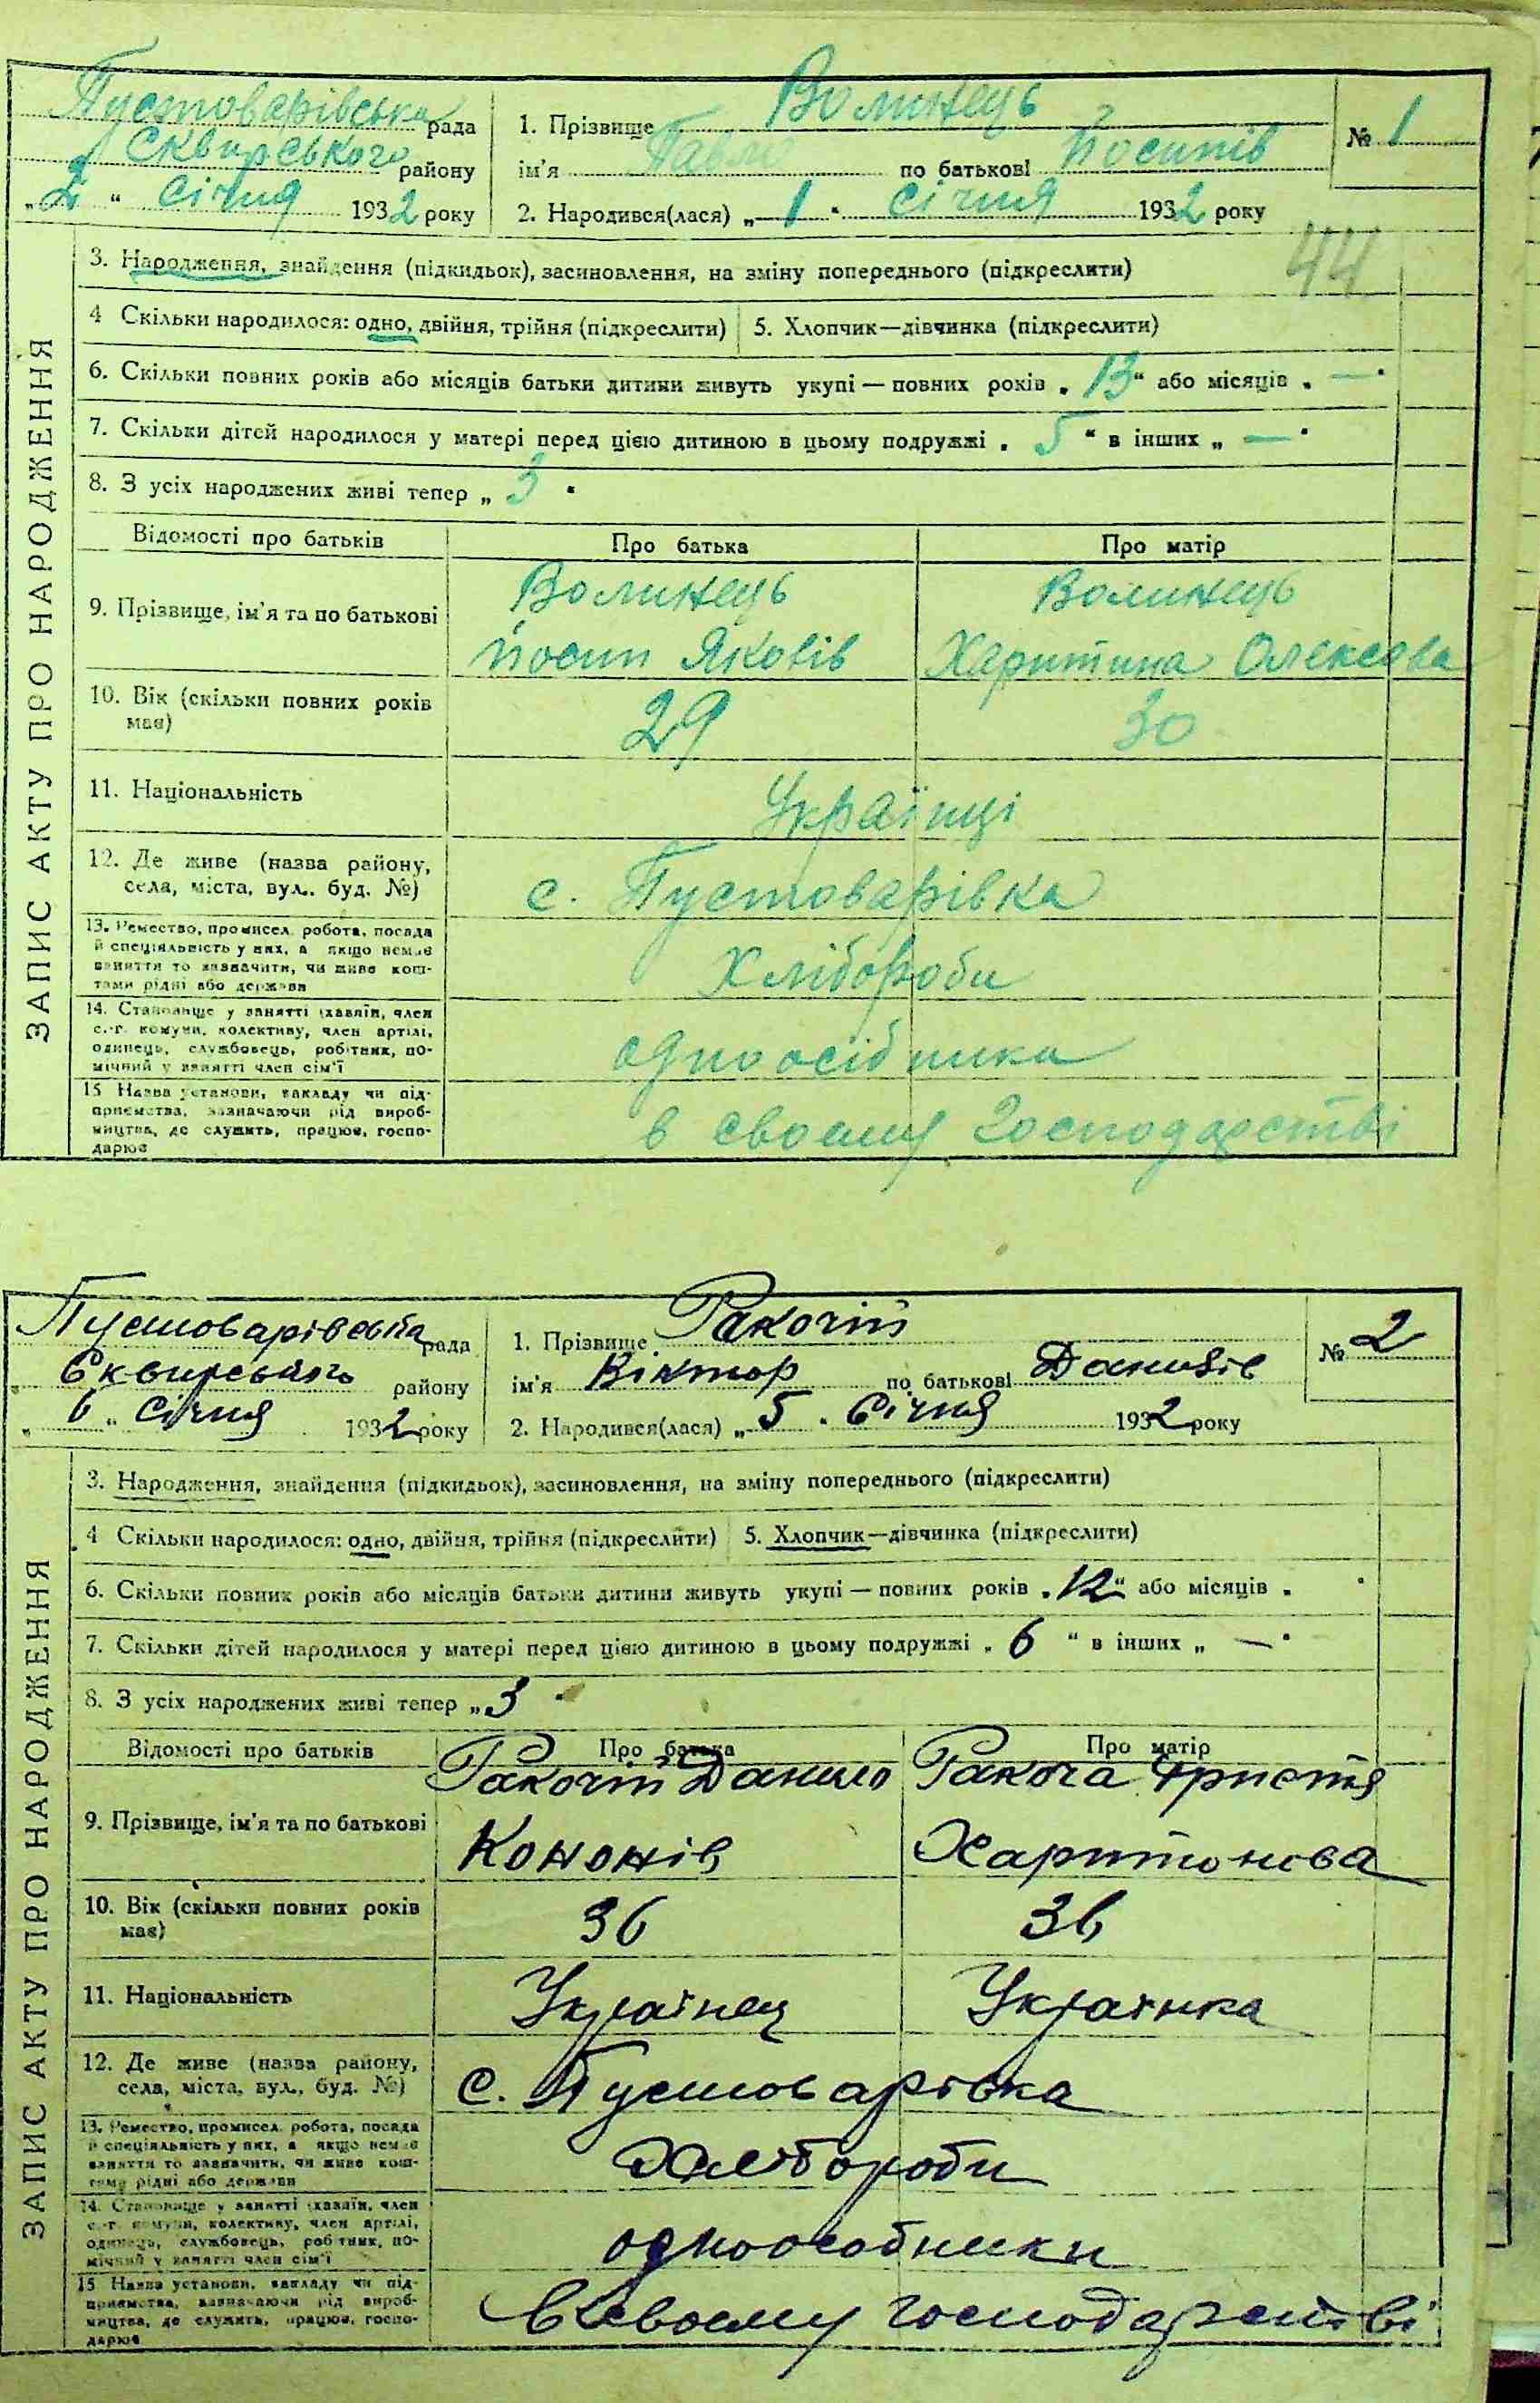 Пустоварівська рада
Сквирського району
„2“ Січня 1932 року
1. Прізвище Волинець
ім'я Павло по батькові Йосипів
2. Народився(лася) „1“ Січня 1932 року
№ 1
44
ЗАПИС АКТУ ПРО НАРОДЖЕННЯ
3. Народження, знайдення (підкидьок), засиновлення, на зміну попереднього (підкреслити)
4 Скільки народилося: одно, двійня, трійня (підкреслити) 5. Хлопчик—дівчинка (підкреслити)
6. Скільки повних років або місяців батьки дитини живуть укупі — повних років „13“ або місяців „—“
7. Скільки дітей народилося у матері перед цією дитиною в цьому подружжі „5“ в інших „—“
8. З усіх народжених живі тепер „3“
Відомості про батьків Про батька Про матір
9. Прізвище, ім'я та по батькові Волинець Волинець
Йосип Яковів Харитина Олексова
10. Вік (скільки повних років має) 29 30
11. Національність Українці
12. Де живе (назва району,
села, міста, вул., буд. №) с. Пустоварівка
13. Ремество, промисел, робота, посада
й спеціяльність у них, а якщо немає
заняття то зазначити, чи живе кош-
тами рідні або держави Хлібороби
14. Становище у занятті (хазяїн, член
с.-г. комуни, колективу, член артілі,
одинець, службовець, робітник, по-
мічний у занятті член сім'ї одноосібника
15 Назва установи, закладу чи під-
приємства, зазначаючи рід вироб-
ництва, де служить, працює, госпо-
дарює в своему господарстві
Пустоварівська рада
Сквирського району
„6“ Січня 1932 року
1. Прізвище Ракочій
ім'я Віктор по батькові Данилів
2. Народився(лася) „5“ Січня 1932 року
№ 2
ЗАПИС АКТУ ПРО НАРОДЖЕННЯ
3. Народження, знайдення (підкидьок), засиновлення, на зміну попереднього (підкреслити)
4 Скільки народилося: одно, двійня, трійня (підкреслити) 5. Хлопчик—дівчинка (підкреслити)
6. Скільки повних років або місяців батьки дитини живуть укупі — повних років „12“ або місяців „ “
7. Скільки дітей народилося у матері перед цією дитиною в цьому подружжі „6“ в інших „—“
8. З усіх народжених живі тепер „3“
Відомості про батьків Про батька Про матір
Ракочій Данило Ракоча Христя
9. Прізвище, ім'я та по батькові Кононів Харитонова
10. Вік (скільки повних років має) 36 36
11. Національність Українец Українка
12. Де живе (назва району,
села, міста, вул., буд. №) с. Пустоварівка
13. Ремество, промисел, робота, посада
й спеціяльність у них, а якщо немає
заняття то зазначити, чи живе кош-
тами рідні або держави Хлібороби
14. Становище у занятті (хазяїн, член
с.-г. комуни, колективу, член артілі,
одинець, службовець, робітник, по-
мічний у занятті член сім'ї одноособники
15 Назва установи, закладу чи під-
приємства, зазначаючи рід вироб-
ництва, де служить, працює, госпо-
дарює в своему господарстві